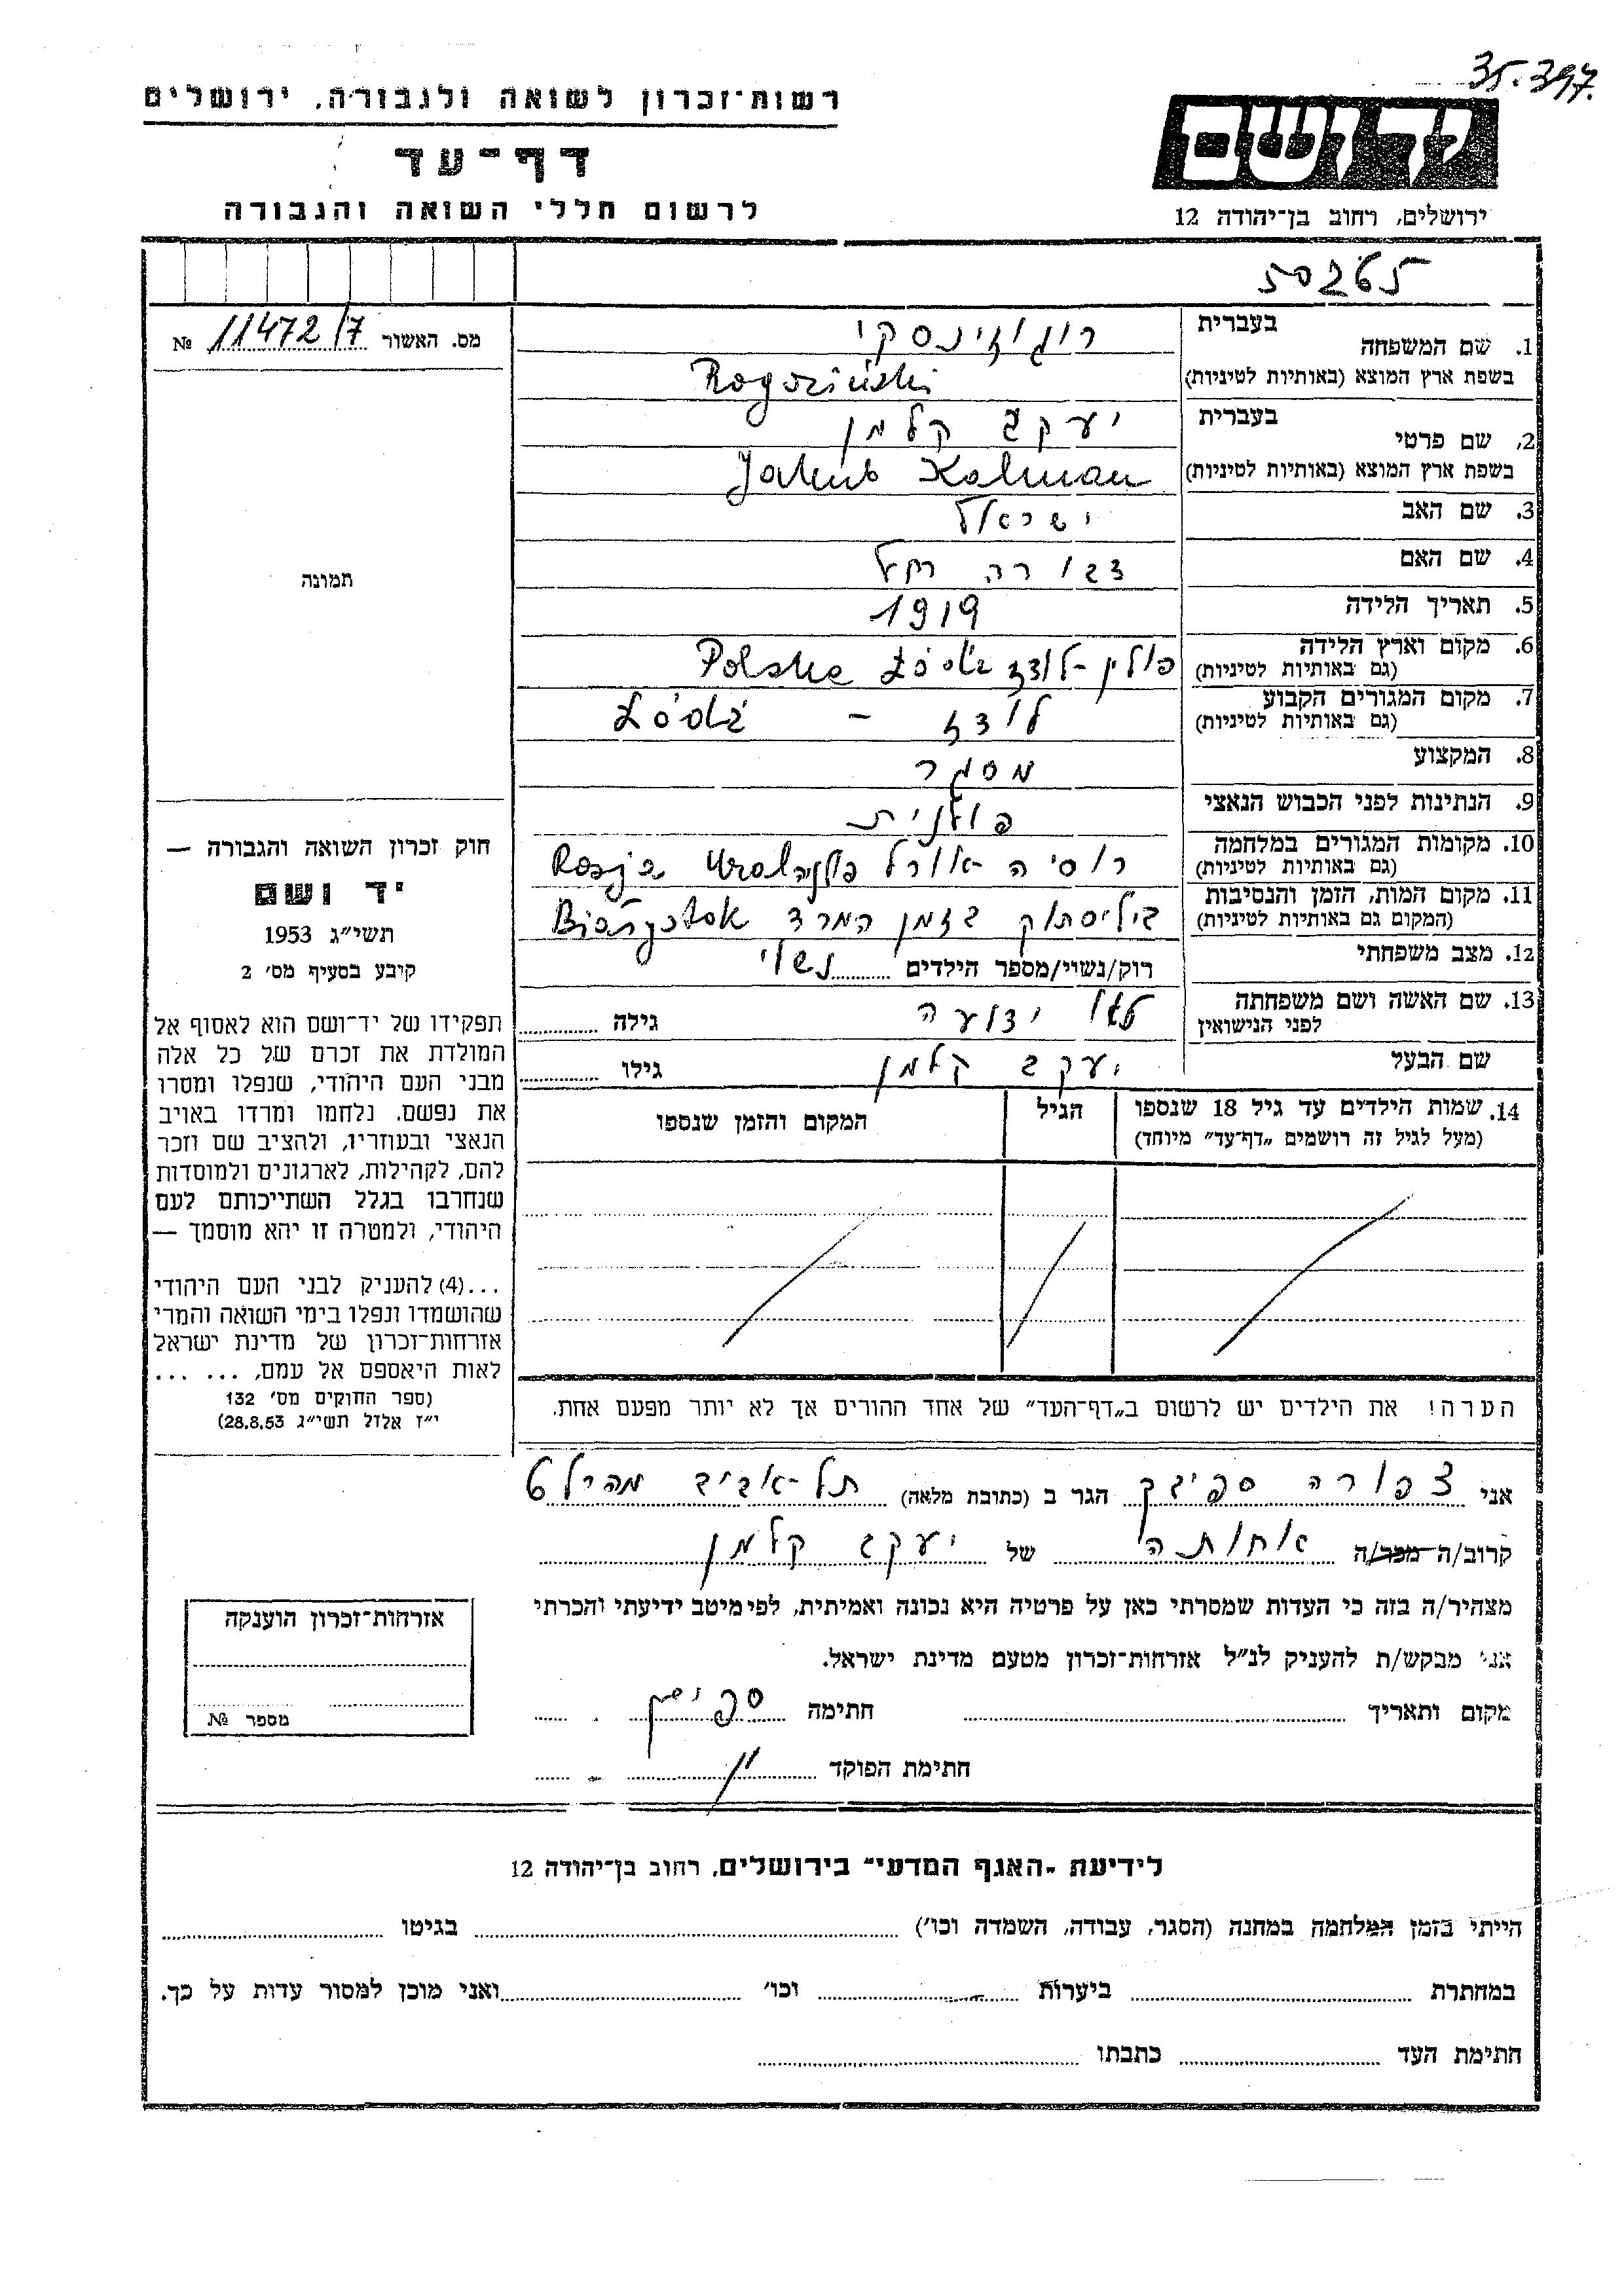 35.397.
רשות־זכרון לשואה ולגבורה, ירושלים
דף־עד
לרשום חללי השואה והגבורה
יד ושם
ירושלים, רחוב בן־יהודה 12
מס. האשור 11472/7 №
תמונה
1. שם המשפחה בעברית רוגוזינסקי
בשפת ארץ המוצא (באותיות לטיניות) Rogoziński
2. שם פרטי בעברית יעקב קלמן
בשפת ארץ המוצא (באותיות לטיניות) Jakub Kalman
3. שם האב ישראל
4. שם האם דבורה רחל
5. תאריך הלידה 1919
6. מקום וארץ הלידה (גם באותיות לטיניות) פולין - לודז Polska Łódź
7. מקום המגורים הקבוע (גם באותיות לטיניות) לודז – Łódź
8. המקצוע מסגר
9. הנתינות לפני הכבוש הנאצי פולנית
10. מקומות המגורים במלחמה (גם באותיות לטיניות) רוסיה - אורל Rosja Ural
11. מקום המות, הזמן והנסיבות (המקום גם באותיות לטיניות) ביליסטוק בזמן המרד Białystok
12. מצב משפחתי רוק/נשוי/מספר הילדים נשוי
13. שם האשה ושם משפחתה לפני הנישואין לא ידועה גילה
שם הבעל יעקב קלמן גילו
14. שמות הילדים עד גיל 18 שנספו (מעל לגיל זה רושמים „דף־עד" מיוחד) הגיל המקום והזמן שנספו
חוק זכרון השואה והגבורה —
יד ושם
תשי״ג 1953
קובע בסעיף מס׳ 2
תפקידו של יד־ושם הוא לאסוף אל
המולדת את זכרם של כל אלה
מבני העם היהודי, שנפלו ומסרו
את נפשם. נלחמו ומרדו באויב
הנאצי ובעוזריו, ולהציב שם וזכר
להם, לקהילות, לארגונים ולמוסדות
שנחרבו בגלל השתייכותם לעם
היהודי, ולמטרה זו יהא מוסמך —
...(4) להעניק לבני העם היהודי
שהושמדו ונפלו בימי השואה והמרי
אזרחות־זכרון של מדינת ישראל
לאות היאספם אל עמם, ... ...
(ספר החוקים מס׳ 132
י״ז אלול תשי״ג 28.8.53)
הערה! את הילדים יש לרשום ב„דף־העד" של אחד ההורים אך לא יותר מפעם אחת.
אני צפורה ספיבק הגר ב (כתובת מלאה) תל-אביב מהרי״ל 6
קרוב/ה מכר/ה אחותה של יעקב קלמן
מצהיר/ה בזה כי העדות שמסרתי כאן על פרטיה היא נכונה ואמיתית, לפי מיטב ידיעתי והכרתי
אני מבקש/ת להעניק לנ״ל אזרחות־זכרון מטעם מדינת ישראל.
מקום ותאריך חתימה ספיבק
חתימת הפוקד
אזרחות־זכרון הוענקה
מספר №
לידיעת „האגף המדעי" בירושלים, רחוב בן־יהודה 12
הייתי בזמן המלחמה במחנה (הסגר, עבודה, השמדה וכו׳) בגיטו
במחתרת ביערות וכו׳ ואני מוכן למסור עדות על כך.
חתימת העד כתבתו